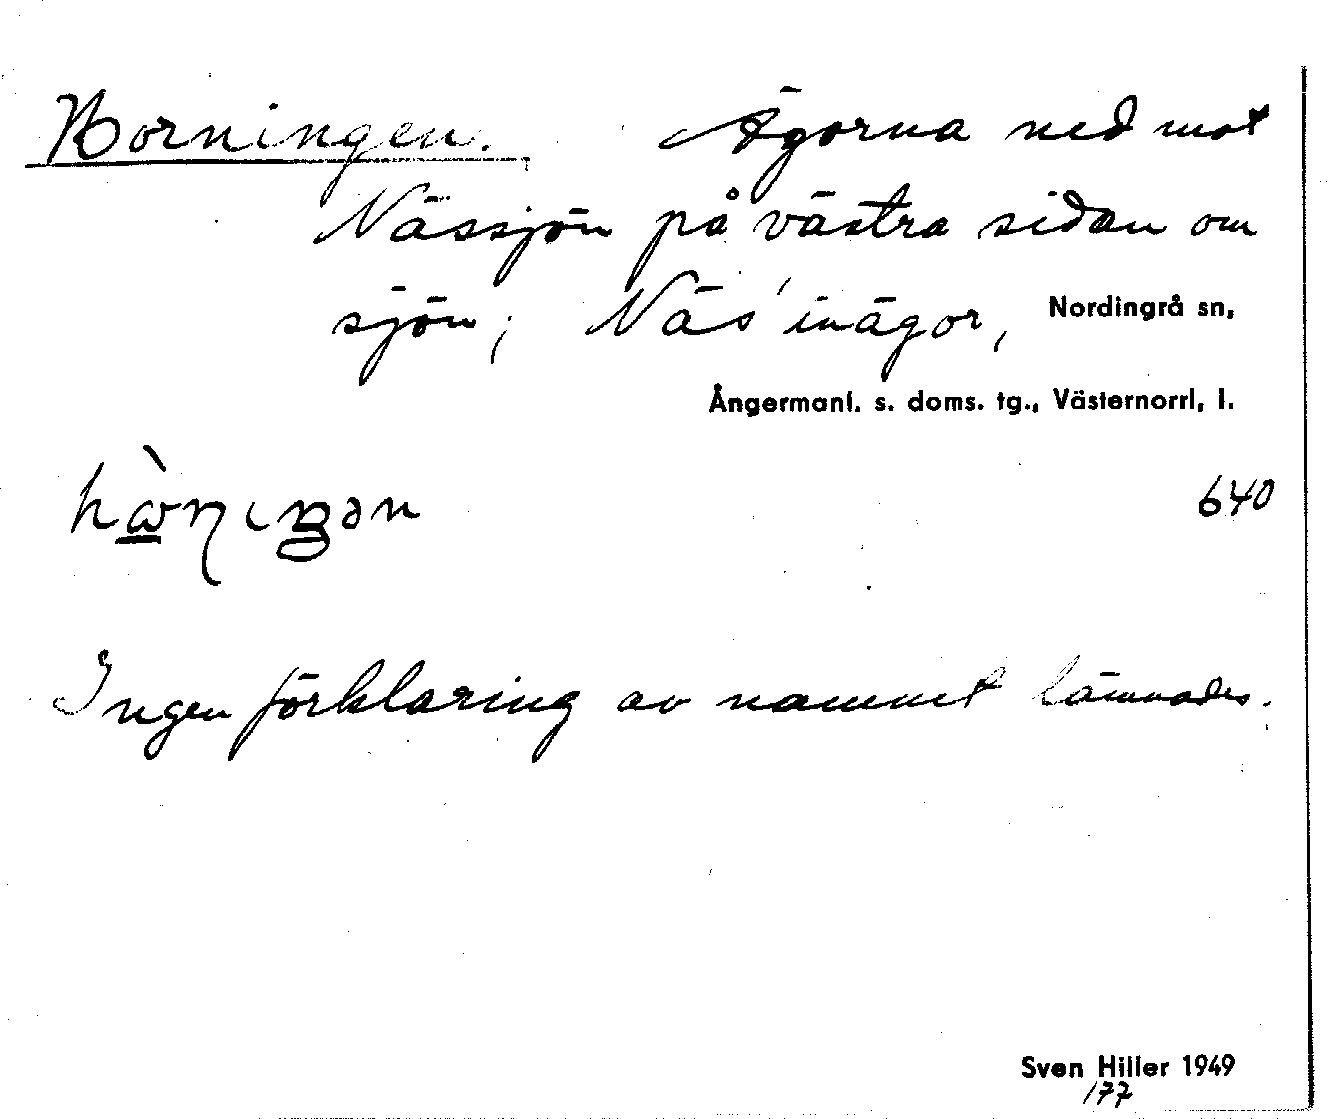 Horningen. Ägorna ned mot
Nässjön på västra sidan om
sjön; Näs' inägor, Nordingrå sn,
Ångermanl. s. doms. tg., Västernorrl, l.
640
Ingen förklaring av namnet lämnades.
Sven Hiller 1949
177